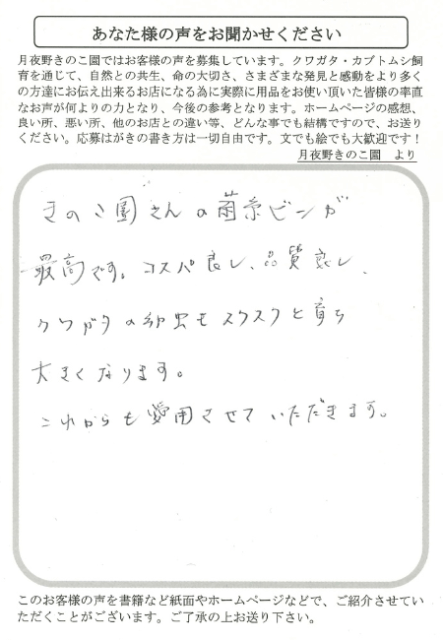 あなた様の声をお聞かせください
月夜野きのこ園ではお客様の声を募集しています。クワガタ・カブトムシ飼
育を通じて、自然との共生、命の大切さ、さまざまな発見と感動をより多く
の方達にお伝え出来るお店になる為に実際に用品をお使い頂いた皆様の率直
なお声が何よりの力となり、今後の参考となります。ホームページの感想、
良い所、悪い所、他のお店との違い等、どんな事でも結構ですので、お送り
ください。応募はがきの書き方は一切自由です。文でも絵でも大歓迎です！
月夜野きのこ園　より
きのこ園さんの菌糸ビンが
最高です。コスパ良し、品質良し、
クワガタの幼虫もスクスクと育ち
大きくなります。
これからも愛用させていただきます。
このお客様の声を書籍など紙面やホームページなどで、ご紹介させてい
ただくことがございます。ご了承の上お送り下さい。